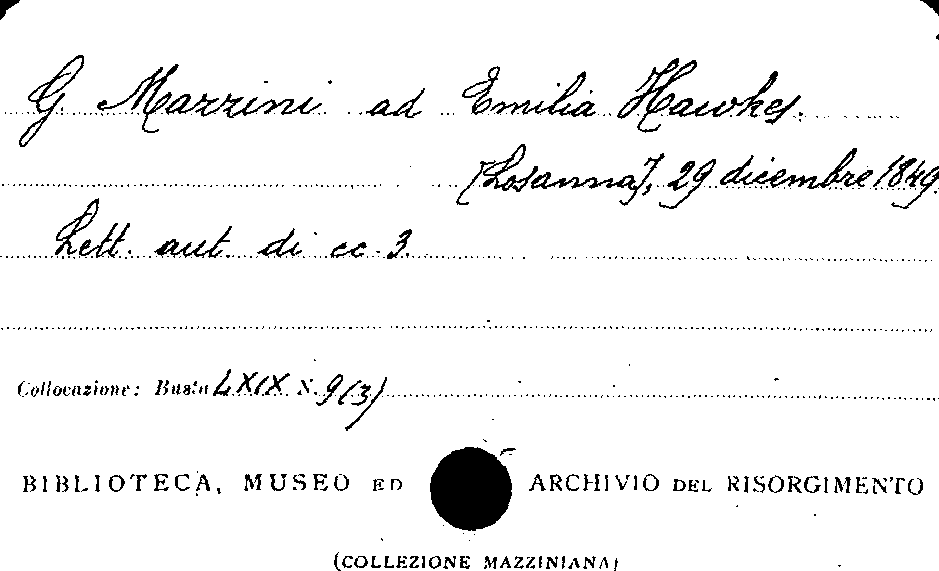 G. Mazzini ad Emilia Hawkes.
[Losanna], 29 dicembre 1849.
Lett. aut. di cc. 3.
Collocazione: Busta LXIX N. 9(3)
BIBLIOTECA, MUSEO ED ARCHIVIO DEL RISORGIMENTO
(COLLEZIONE MAZZINIANA)